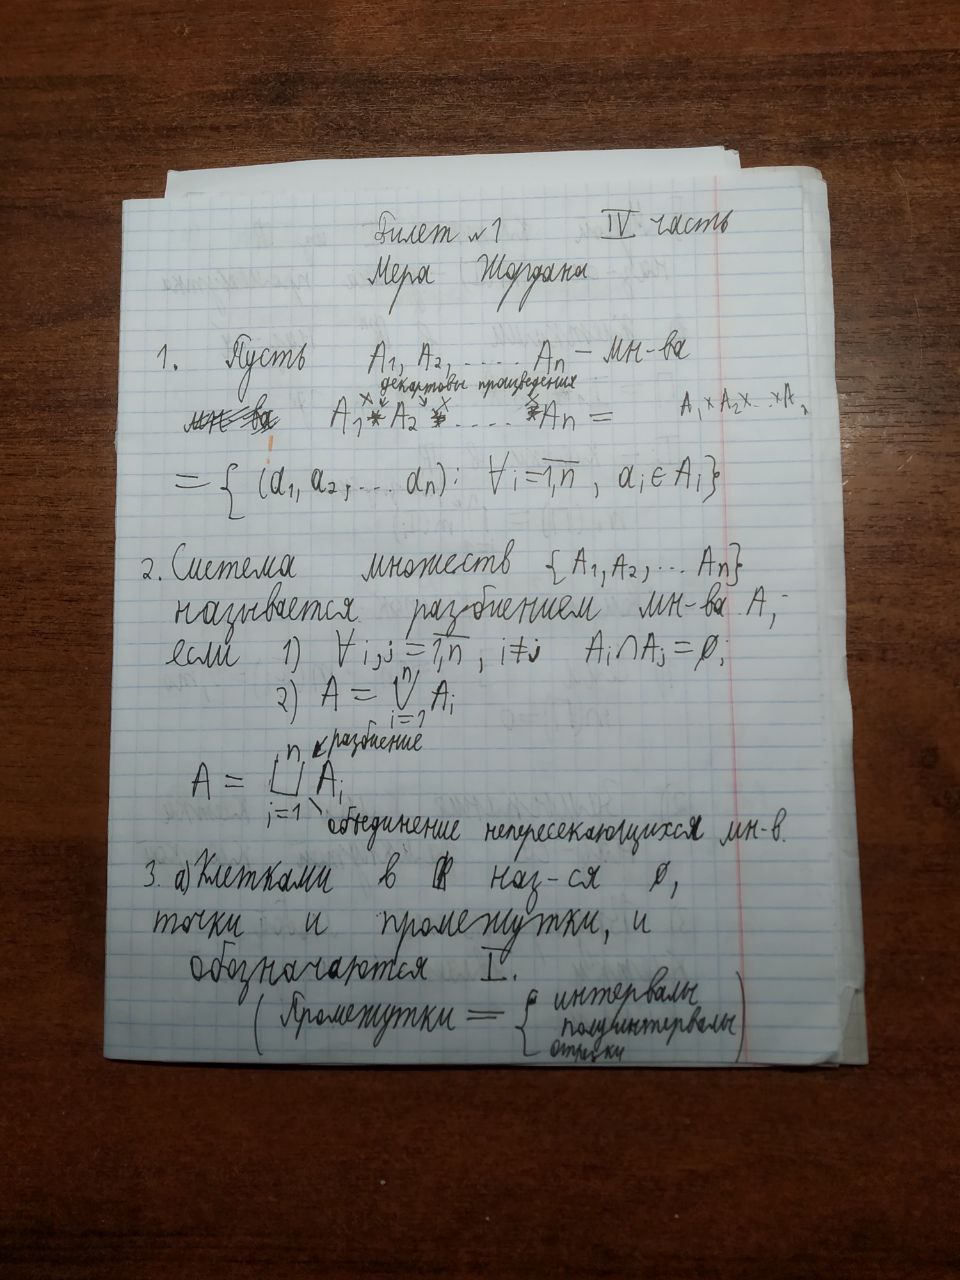 Билет №1 IV часть
Мера Жордана
1. Пусть A₁, A₂, ..... Aₙ – мн-ва
декартовы произведения
A₁ × A₂ × ..... × Aₙ = A₁×A₂×...×Aₙ
= { (a₁, a₂, ... aₙ): ∀ i = 1,n̅ , aᵢ ∈ Aᵢ}
2. Система множеств {A₁, A₂, ... Aₙ}
называется разбиением мн-ва A,
если 1) ∀ i, j = 1,n̅ , i ≠ j Aᵢ ∩ Aⱼ = ∅;
2) A = ⋃ⁿᵢ₌₁ Aᵢ
разбиение
A = ⊔ⁿᵢ₌₁ Aᵢ
объединение непересекающихся мн-в.
3. а) Клетками в ℝ наз-ся ∅,
точки и промежутки, и
обозначаются I.
(Промежутки = { интервалы
полуинтервалы)
отрезки